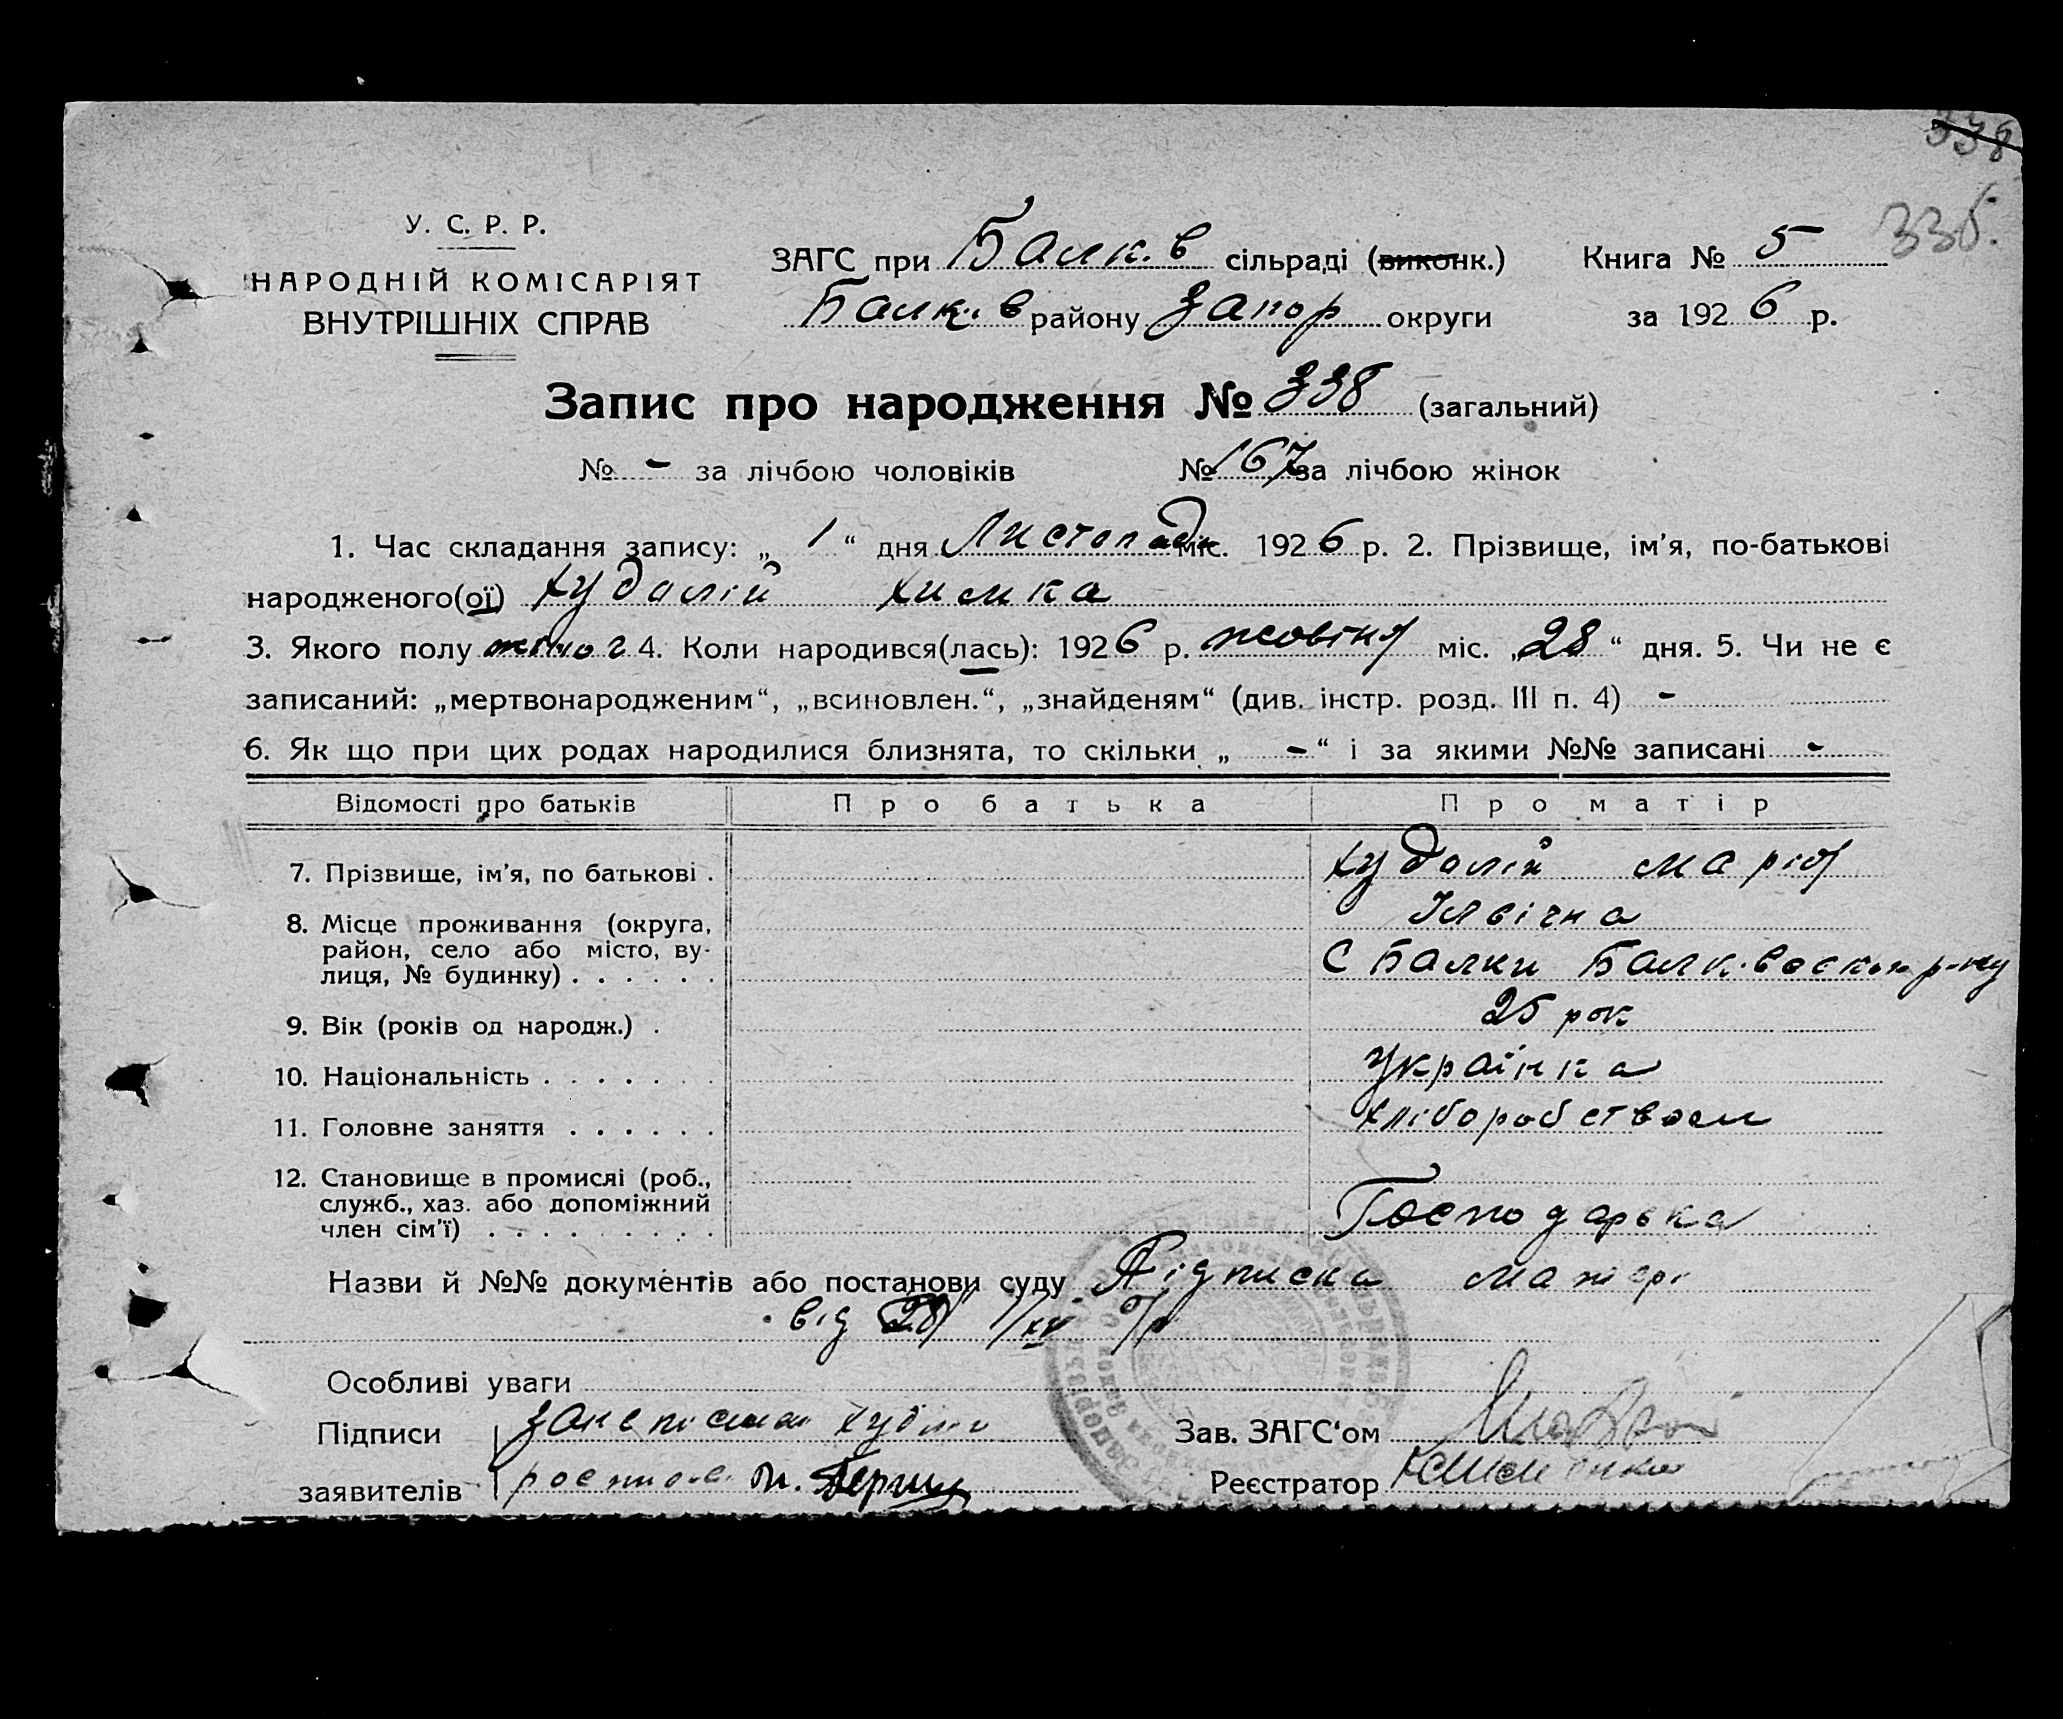 338
336.
У. С. Р. Р.
НАРОДНІЙ КОМІСАРІЯТ
ВНУТРІШНІХ СПРАВ
ЗАГС при Балк. в сільраді (виконк.) Книга № 5
Балк. в району Запор округи за 1926 р.
Запис про народження № 338 (загальний)
№ - за лічбою чоловіків № 167 за лічбою жінок
1. Час складання запису: „ 1 “ дня Листопада міс. 1926 р. 2. Прізвище, ім'я, по-батькові
народженого(ої) Худолій Химка
3. Якого полу жіног 4. Коли народився(лась): 1926 р. жовтня міс. „28“ дня. 5. Чи не є
записаний: „мертвонародженим“, „всиновлен.“, „знайденям“ (див. інстр. розд. III п. 4) -
6. Як що при цих родах народилися близнята, то скільки „ - “ і за якими №№ записані -
Відомості про батьків Про батька Про матір
7. Прізвище, ім'я, по батькові . Худолій Марія
Ілвічна
8. Місце проживання (округа,
район, село або місто, ву-
лиця, № будинку) . . . . . . С Балки Балк.
9. Вік (років од народж.) . 25 рок
10. Національність . . . . . . . Українка
11. Головне заняття . . . . . . Хліборобством
12. Становище в промислі (роб.,
служб., хаз. або допоміжний
член сім'ї) . . . . . . . . . Господарька
Назви й №№ документів або постанови суду Підписка матері
від
Особливі уваги
Підписи
Зав. ЗАГС'ом
заявителів
Реєстратор